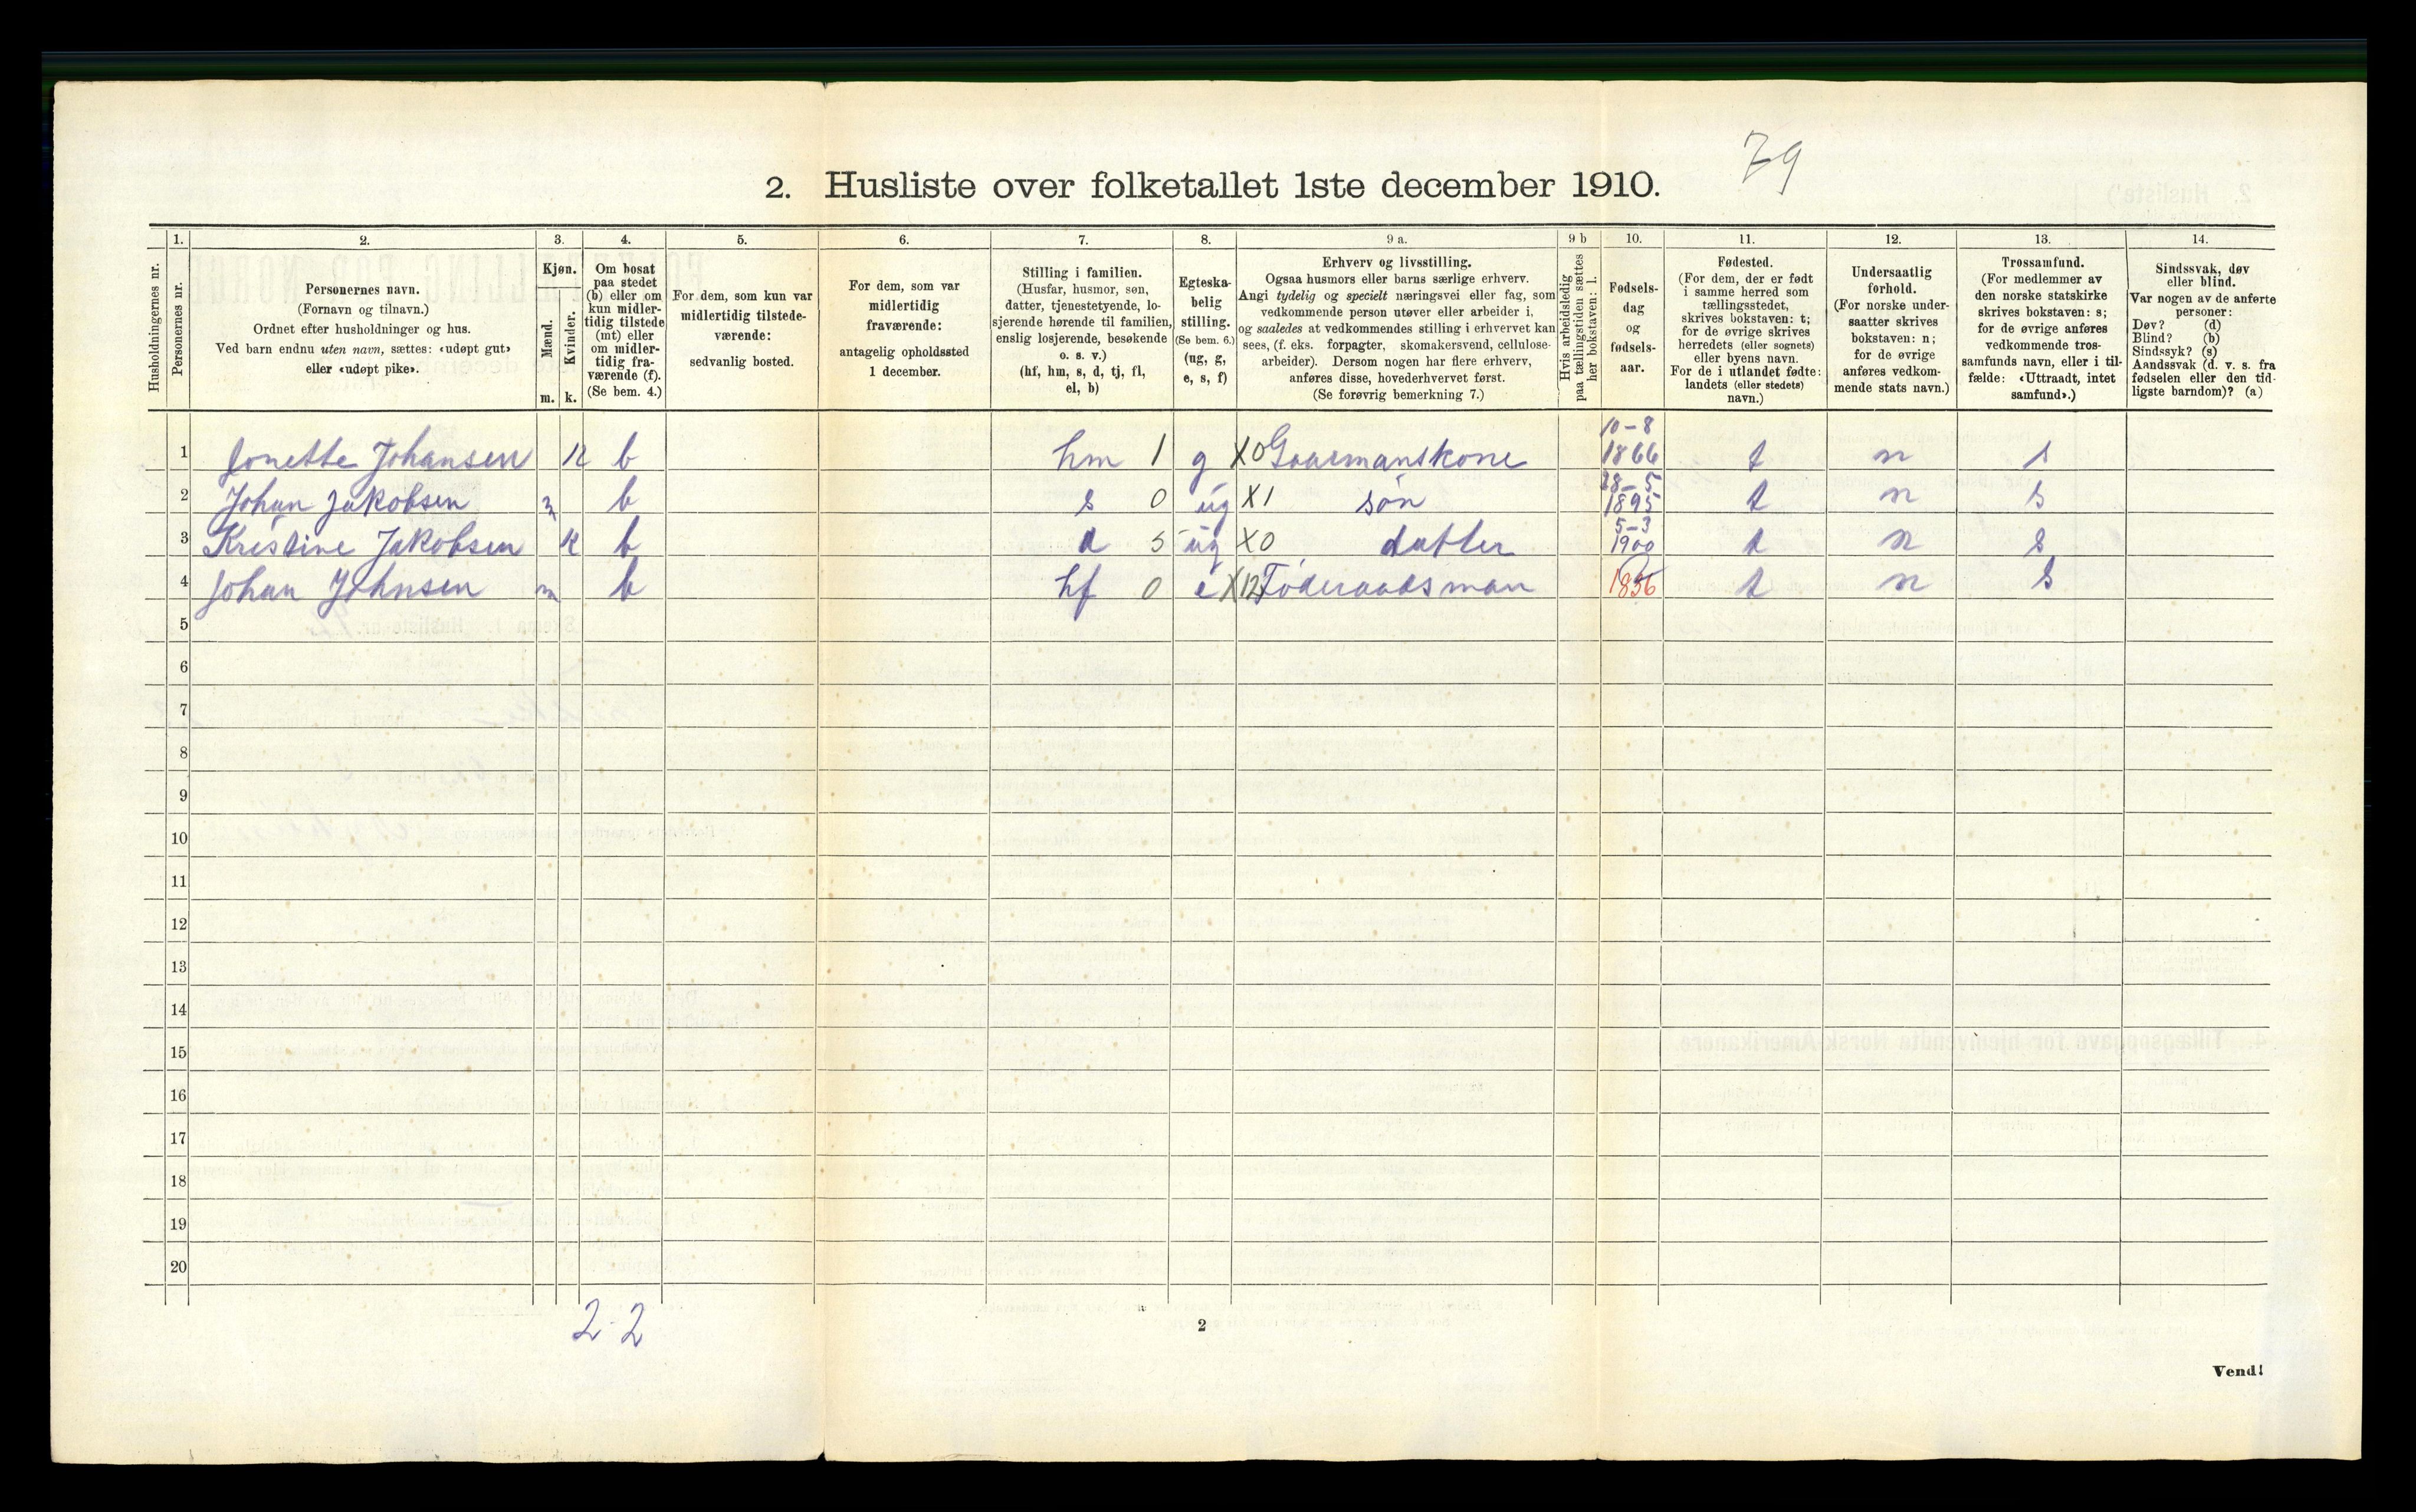 79
2. Husliste over folketallet 1ste december 1910.
Husholdningernes nr.
1.
Personernes nr.
2.
Personernes navn.
(Fornavn og tilnavn.)
Ordnet efter husholdninger og hus.
Ved barn endnu uten navn, sættes: «udøpt gut»
eller «udøpt pike».
3.
Kjøn.
Mænd.
Kvinder.
m. k.
4.
Om bosat
paa stedet
(b) eller om
kun midler-
tidig tilstede
(mt) eller
om midler-
tidig fra-
værende (f).
(Se bem. 4.)
5.
For dem, som kun var
midlertidig tilstede-
værende:
sedvanlig bosted.
6.
For dem, som var
midlertidig
fraværende:
antagelig opholdssted
1 december.
7.
Stilling i familien.
(Husfar, husmor, søn,
datter, tjenestetyende, lo-
sjerende hørende til familien,
enslig losjerende, besøkende
o. s. v.)
(hf, hm, s, d, tj, fl,
el, b)
8.
Egteska-
belig
stilling.
(Se bem. 6.)
(ug, g,
e, s, f)
9 a.
Erhverv og livsstilling.
Ogsaa husmors eller barns særlige erhverv.
Angi tydelig og specielt næringsvei eller fag, som
vedkommende person utøver eller arbeider i,
og saaledes at vedkommendes stilling i erhvervet kan
sees, (f. eks. forpagter, skomakersvend, cellulose-
arbeider). Dersom nogen har flere erhverv,
anføres disse, hovederhvervet først.
(Se forøvrig bemerkning 7.)
9 b
Hvis arbeidsledig
paa tællingstiden sættes
her bokstaven: l.
10.
Fødsels-
dag
og
fødsels-
aar.
11.
Fødested.
(For dem, der er født
i samme herred som
tællingsstedet,
skrives bokstaven: t;
for de øvrige skrives
herredets (eller sognets)
eller byens navn.
For de i utlandet fødte:
landets (eller stedets)
navn.)
12.
Undersaatlig
forhold.
(For norske under-
saatter skrives
bokstaven: n;
for de øvrige
anføres vedkom-
mende stats navn.)
13.
Trossamfund.
(For medlemmer av
den norske statskirke
skrives bokstaven: s;
for de øvrige anføres
vedkommende tros-
samfunds navn, eller i til-
fælde: «Uttraadt, intet
samfund».)
14.
Sindssvak, døv
eller blind.
Var nogen av de anførte
personer:
Døv? (d)
Blind? (b)
Sindssyk? (s)
Aandssvak (d. v. s. fra
fødselen eller den tid-
ligste barndom)? (a)
1 Jonette Johansen k b hm 1 g X0 Gaarmanskone 10-8 1866 t n s
2 Johan Jakobsen m b s 0 ug X1 søn 28-5 1895 t n s
3 Kristine Jakobsen k b d 5 ug X0 datter 5-3 1900 t n s
4 Johan Johnsen m b hf 0 e X12 Føderaadsman 1836 t n s
5
6
7
8
9
10
11
12
13
14
15
16
17
18
19
20
2-2
2
Vend!